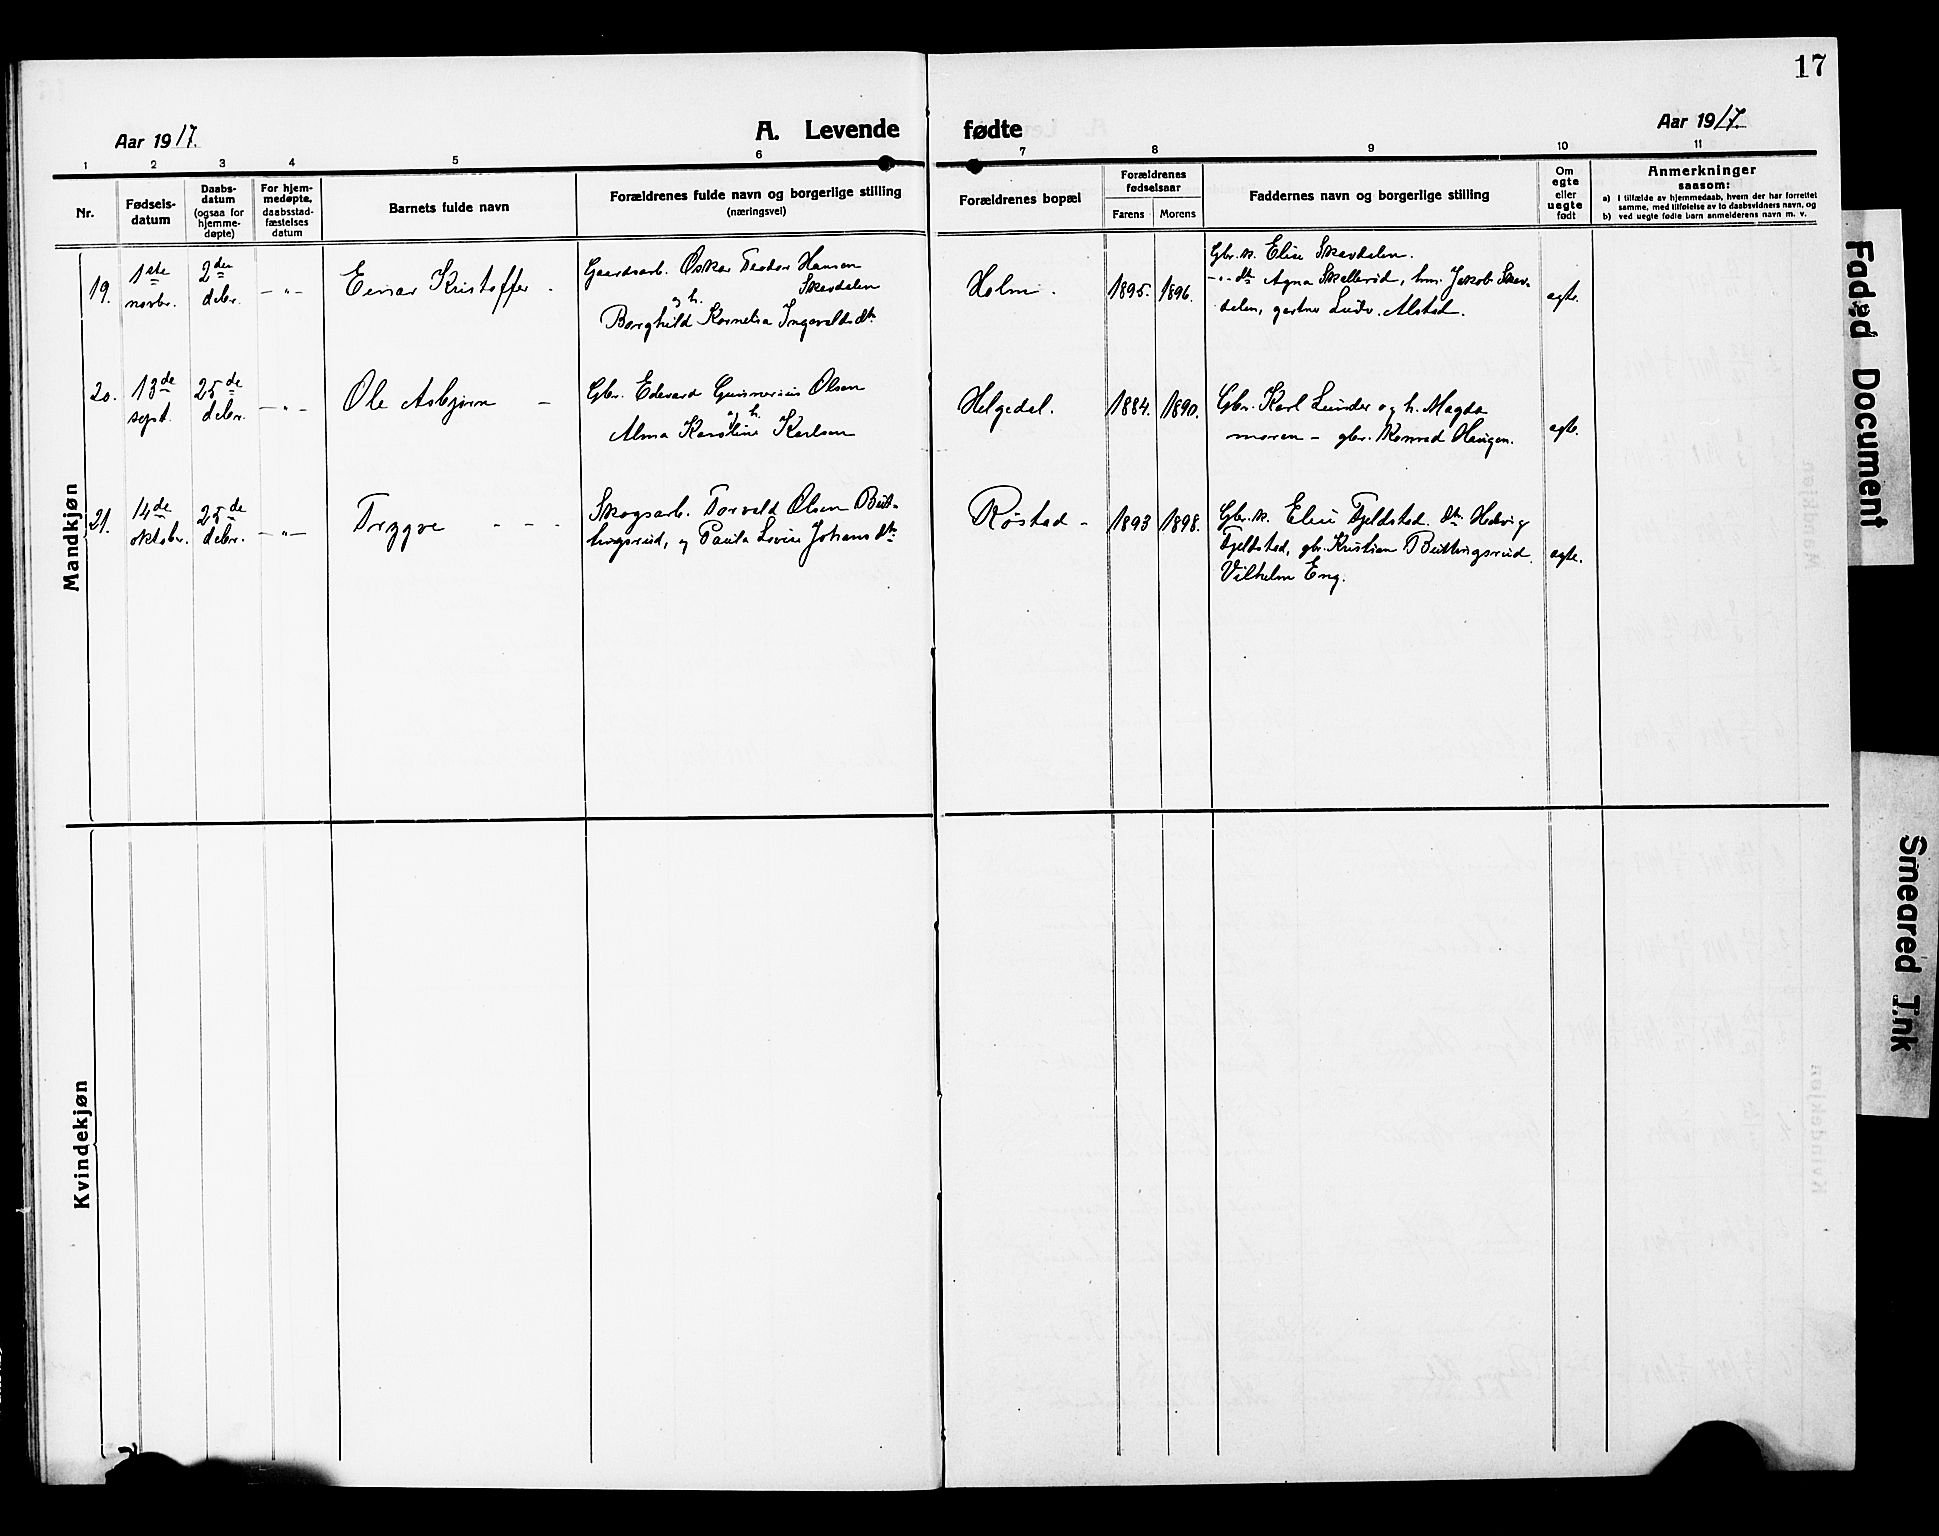 17
Aar 1917.
A. Levende fødte
Aar 1917.
1 2 3 4 5 6 7 8 9 10 11
Nr.
Fødsels-
datum
Daabs-
datum
(ogsaa for
hjemme-
døpte)
For hjem-
medøpte,
daabsstad-
fæstelses
datum
Barnets fulde navn
Forældrenes fulde navn og borgerlige stilling
(næringsvei)
Forældrenes bopæl
Forældrenes
fødselsaar
Farens Morens
Faddernes navn og borgerlige stilling
Om
egte
eller
uegte
født
Anmerkninger
saasom:
a) i tilfælde av hjemmedaab, hvem der har forrettet
samme, med tilføielse av to daabsvidners navn, og
b) ved uegte fødte børn anmelderens navn m. v.
Mandkjøn
19.
1ste
novbr.
2den
debr.
— " —
Einar Kristoffer
Gaardsarb. Oskar Teodor Hansen
Skavdalen
og h.
Borghild Kornelia Ingevaldsdtr
Holm.
1895. 1896.
Gbr. k. Elise Skavdalen.
— " — dtr Agna Skallerød, hm. Jakob Skav-
dalen, gartner Ludv. Alstad.
egte.
20.
13de
sept.
25de
debr.
— " —
Ole Asbjørn —
Gbr. Edevard Gunnerius Olsen
og h.
Alma Karoline Karlsen
Helgedal.
1884. 1890.
Gbr. Karl Lunder og h. Magda
moren — gbr. Konrad Haugen.
egte.
21.
14de
oktobr.
25de
debr.
— " —
Trygve - - -
Skogsarb. Torvald Olsen But-
tingsrud, og Paula Lovise Johansdtr
Røstad -
1893 1898.
Gbr. k. Elise Fjeldstad. dtr Hedvig
Fjeldstad, gbr. Kristian Buttingsrud.
Vilhelm Eng.
egte.
Kvindekjøn
Faded Document
Smeared Ink